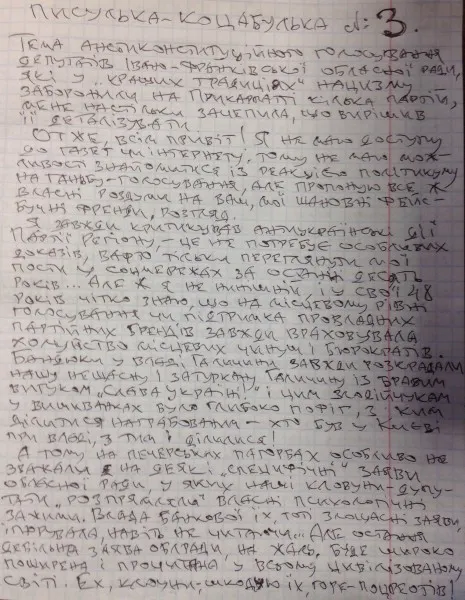 ПИСУЛЬКА-КОЦАБУЛЬКА №: 3.
ТЕМА АНТИКОНСТИТУЦІЙНОГО ГОЛОСУВАННЯ
ДЕПУТАТІВ ІВАНО-ФРАНКІВСЬКОЇ ОБЛАСНОЇ РАДИ,
ЯКІ У „КРАЩИХ ТРАДИЦІЯХ" НАЦИЗМУ
ЗАБОРОНИЛИ НА ПРИКАРПАТТІ КІЛЬКА ПАРТІЙ,
МЕНЕ НАСТІЛЬКИ ЗАЧЕПИЛА, ЩО ВИРІШИВ
ЇЇ ДЕТАЛІЗУВАТИ.
ОТЖЕ, ВСІМ ПРИВІТ! Я НЕ МАЮ ДОСТУПУ
ДО ГАЗЕТ ЧИ ІНТЕРНЕТУ. ТОМУ НЕ МАЮ МОЖ-
ЛИВОСТІ ЗНАЙОМИТИСЯ ІЗ РЕАКЦІЄЮ ПОЛІТИКУМУ
НА ГАНЬБУ-ГОЛОСУВАННЯ, АЛЕ ПРОПОНУЮ ВСЕ Ж
ВЛАСНІ РОЗДУМИ НА ВАШ, МОЇ ШАНОВНІ ФЕЙС-
БУЧНІ ФРЕНДИ, РОЗГЛЯД.
Я ЗАВЖДИ КРИТИКУВАВ АНТИУКРАЇНСЬКІ ДІЇ
ПАРТІЇ РЕГІОНІВ, – ЦЕ НЕ ПОТРЕБУЄ ОСОБЛИВИХ
ДОКАЗІВ, ВАРТО ТІЛЬКИ ПЕРЕГЛЯНУТИ МОЇ
ПОСТИ У СОЦМЕРЕЖАХ ЗА ОСТАННІ ДЕСЯТЬ
РОКІВ... АЛЕ Ж Я НЕ НИНІШНІЙ, І У СВОЇ 48
РОКІВ ЧІТКО ЗНАЮ, ЩО НА МІСЦЕВОМУ РІВНІ
ГОЛОСУВАННЯ ЧИ ПІДТРИМКА ПРОВЛАДНИХ
ПАРТІЙНИХ БРЕНДІВ ЗАВЖДИ ВРАХОВУВАЛА
ХОЛУЙСТВО МІСЦЕВИХ ЧИНУШ І БЮРОКРАТІВ.
БАНДЮКИ У ВЛАДІ ГАЛИЧИНИ ЗАВЖДИ РОЗКРАДАЛИ
НАШУ НЕЩАСНУ І ЗАТУРКАНУ ГАЛИЧИНУ ІЗ БРАВИМ
ВИГУКОМ „СЛАВА УКРАЇНІ!" І ЦИМ ЗЛОДІЙЧУКАМ
У ВИШИВАНКАХ БУЛО ГЛИБОКО ПОФІГ, З КИМ
ДІЛИТИСЯ НАГРАБОВАНИМ – ХТО БУВ У КИЄВІ
ПРИ ВЛАДІ, З ТИМ І ДІЛИЛИСЯ!
А ТОМУ НА ПЕЧЕРСЬКИХ ПАГОРБАХ ОСОБЛИВО НЕ
ЗВАЖАЛИ НА ДЕЯКІ „СПЕЦИФІЧНІ" ЗАЯВИ
ОБЛАСНОЇ РАДИ, У ЯКИХ НАШІ КЛОВУНИ-ДЕПУ-
ТАТИ „РОЗПРЯМЛЯЛИ" ВЛАСНІ ПСИХОЛОГІЧНІ
ЗАЖИМИ. ВЛАДА БАНКОВОЇ ЇХ ТОТІ ЗЛОЩАСНІ ЗАЯВИ,
ІГНОРУВАЛА, НАВІТЬ НЕ ЧИТАЮЧИ... АЛЕ ОСТАННЯ
ДЕБІЛЬНА ЗАЯВА ОБЛРАДИ, НА ЖАЛЬ, БУДЕ ШИРОКО
ПОШИРЕНА І ПРОЧИТАНА У ВСЬОМУ ЦИВІЛІЗОВАНОМУ
СВІТІ. ЕХ, КЛОУНИ, ШКОДУЮ ЇХ, ГОРЕ-ПОЦРЕОТІВ!